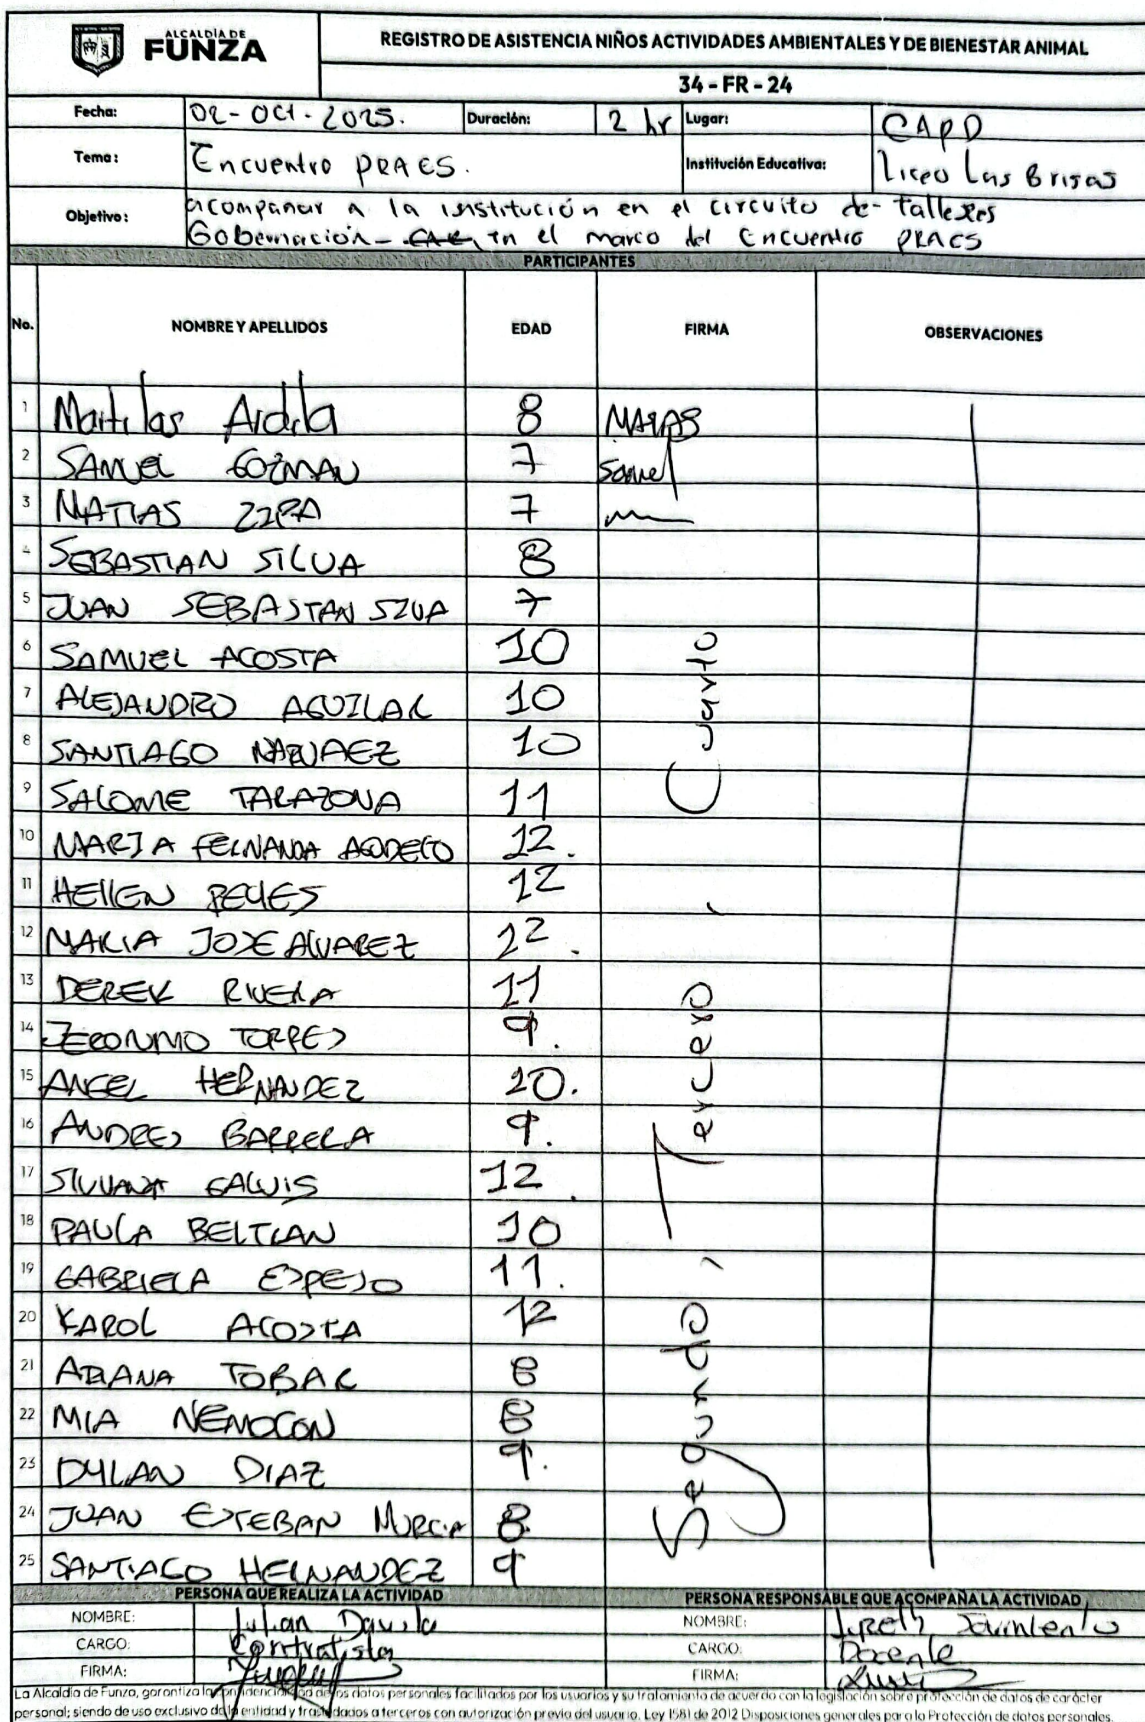 ALCALDÍA DE
FUNZA
REGISTRO DE ASISTENCIA NIÑOS ACTIVIDADES AMBIENTALES Y DE BIENESTAR ANIMAL
34 - FR - 24
Fecha: 02 - Oct - 2025. Duración: 2 hr Lugar: CAPD
Tema: Encuentro PRAES. Institución Educativa: Liceo Las Brisas
Objetivo: acompañar a la institución en el circuito de talleres
Gobernación - en el marco del Encuentro PRAES
PARTICIPANTES
No. NOMBRE Y APELLIDOS EDAD FIRMA OBSERVACIONES
1 Ardila 8
2 SAMUEL GUZMAN 7 Samuel
3 MATIAS ZIPA 7
4 SEBASTIAN SILVA 8
5 JUAN SEBASTIAN SILVA 7
6 SAMUEL ACOSTA 10
7 ALEJANDRO AGUILAR 10
8 SANTIAGO NARVAEZ 10
9 SALOME TARAZONA 11
10 MARIA FERNANDA AGUDELO 12.
11 HELLEN REYES 12
12 MARIA JOSE ALVAREZ 12.
13 DEREK RIVERA 11
14 JERONIMO TORRES 9.
15 ANGEL HERNANDEZ 10.
16 ANDRES BARRERA 9.
17 SILVANA GALVIS 12.
18 PAULA BELTRAN 10
19 GABRIELA ESPEJO 11.
20 KAROL ACOSTA 12
21 ADANA TOBAR 8
22 MIA NEMOCON 8
23 DYLAN DIAZ 9.
24 JUAN ESTEBAN MURCIA 8
25 SANTIAGO HERNANDEZ 9
Segundo, Tercero, Cuarto
PERSONA QUE REALIZA LA ACTIVIDAD PERSONA RESPONSABLE QUE ACOMPAÑA LA ACTIVIDAD
NOMBRE: Julian Davila NOMBRE:
CARGO: Contratista CARGO: Docente
FIRMA: FIRMA:
La Alcaldía de Funza, garantiza la confidencialidad de los datos personales facilitados por los usuarios y su tratamiento de acuerdo con la legislación sobre protección de datos de carácter
personal; siendo de uso exclusivo de la entidad y trasladados a terceros con autorización previa del usuario. Ley 1581 de 2012 Disposiciones generales para la Protección de datos personales.